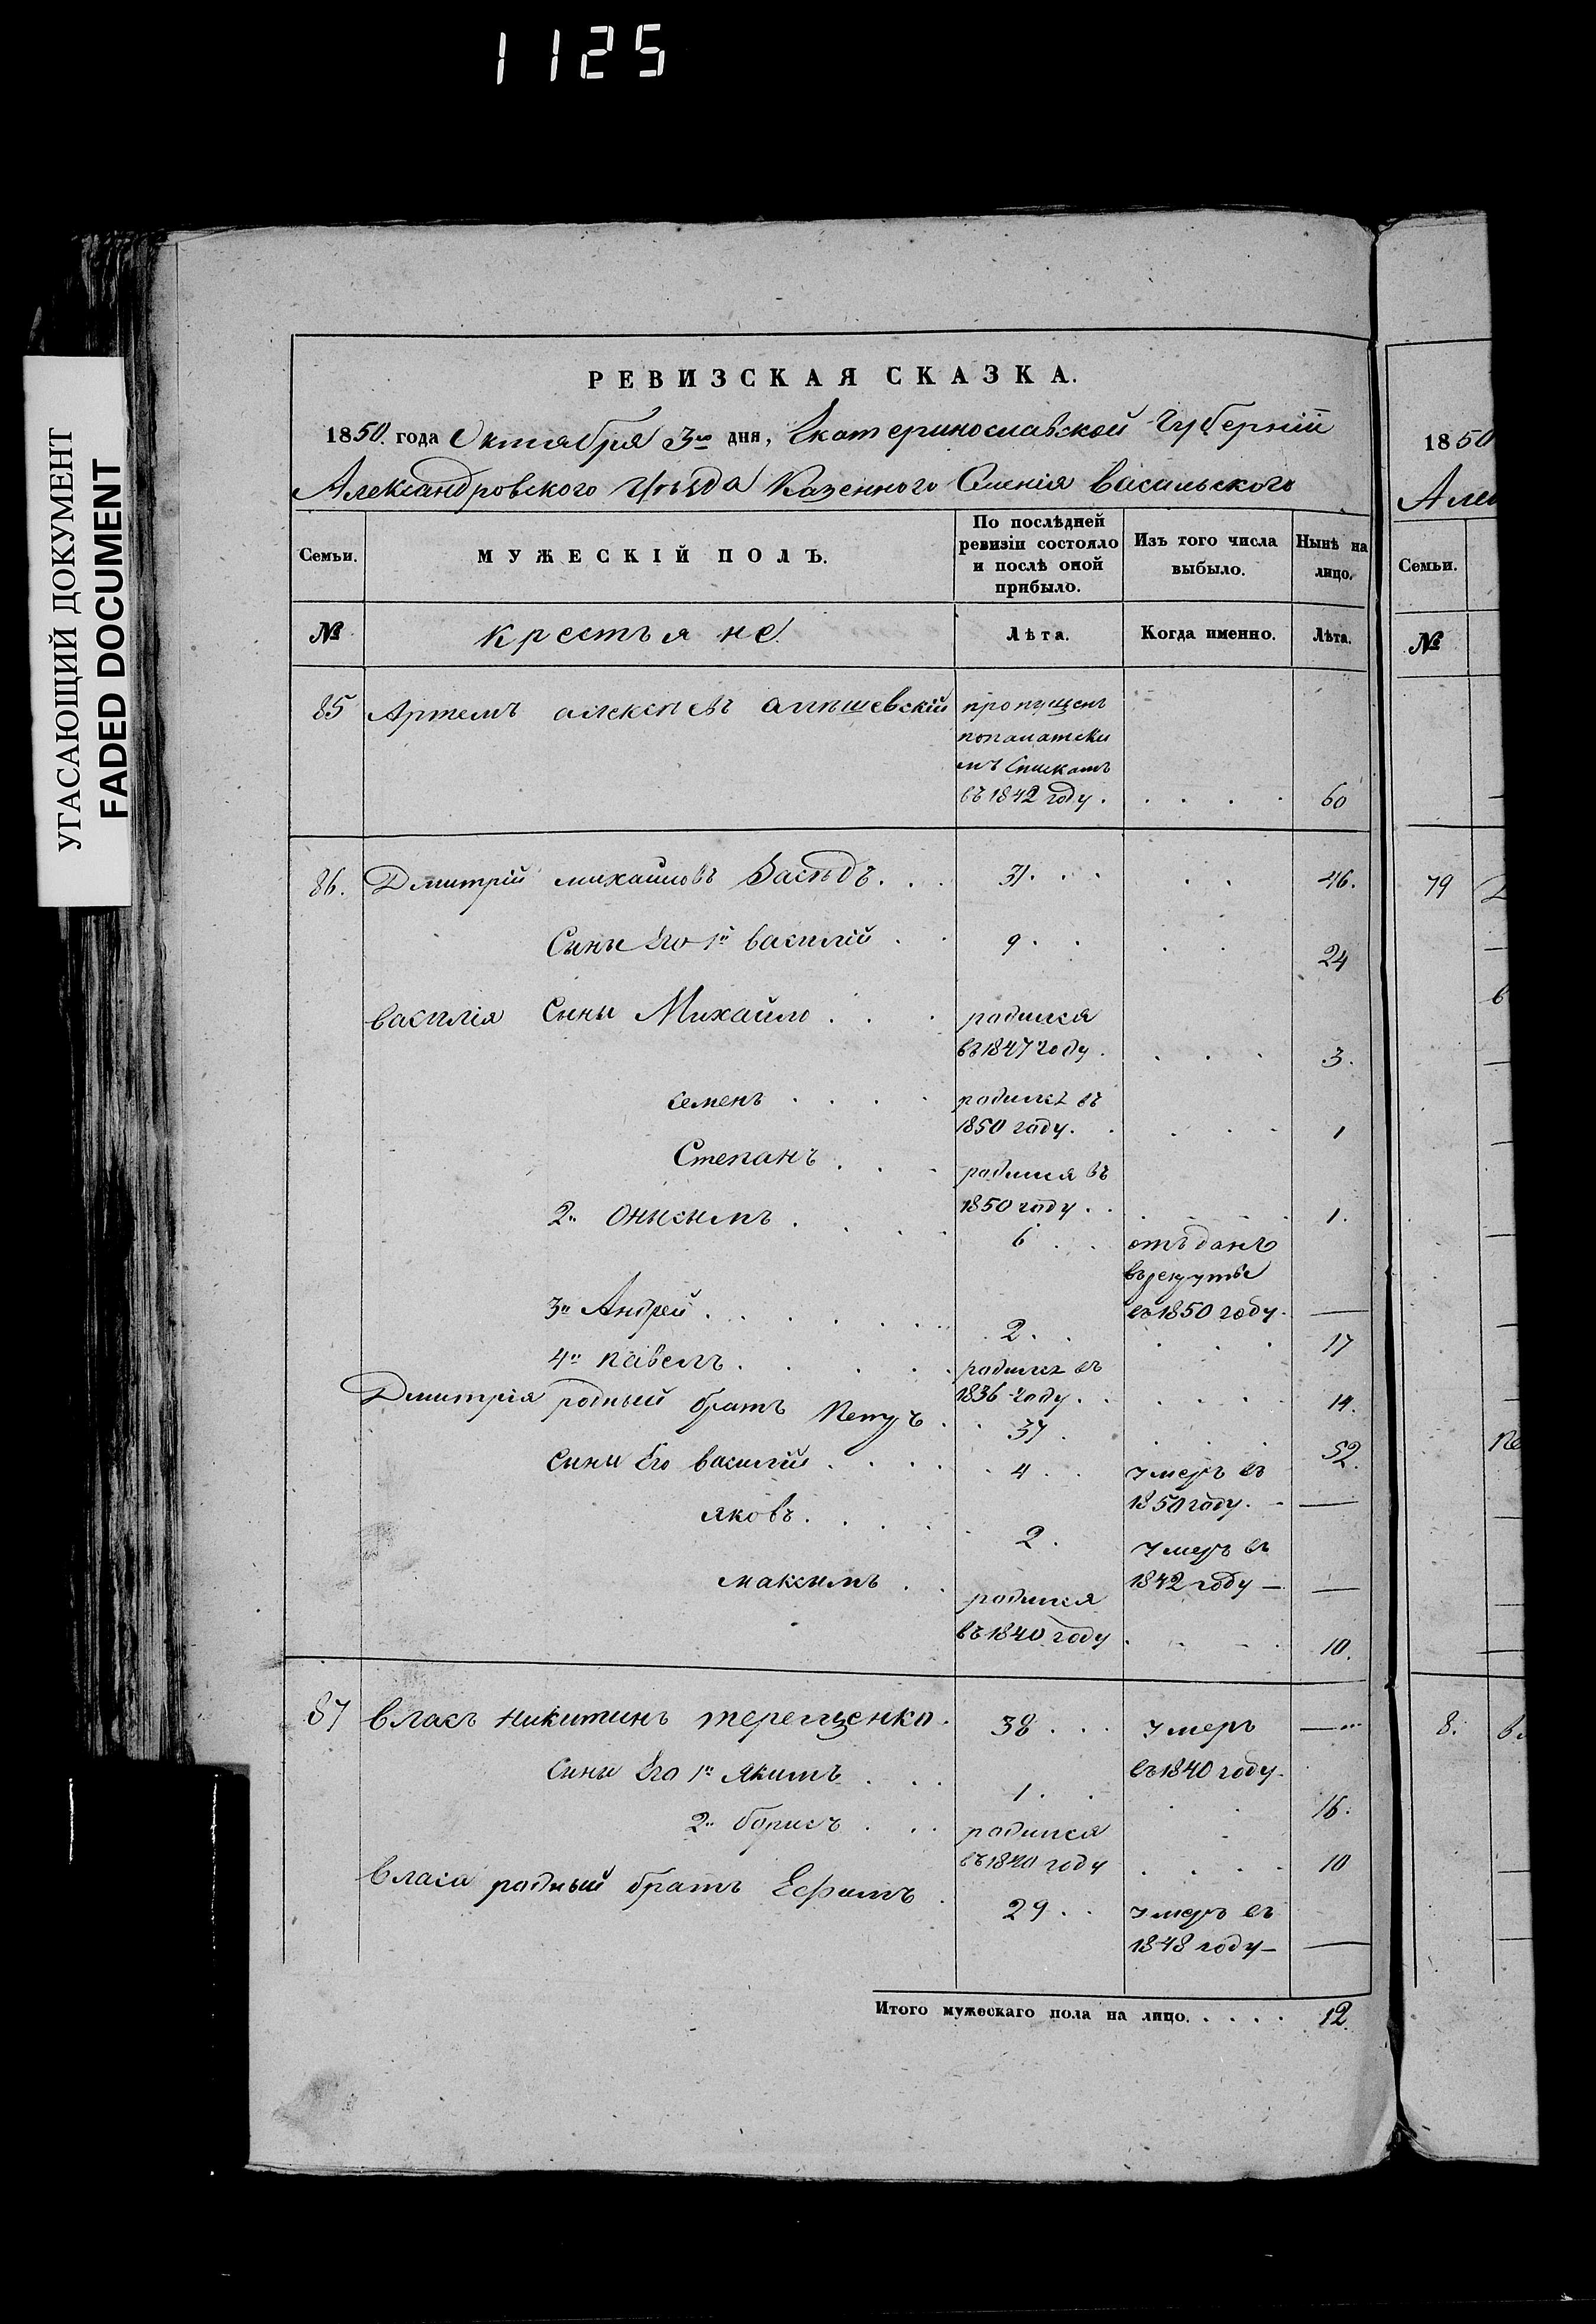 1125
УГАСАЮЩИЙ ДОКУМЕНТ
FADED DOCUMENT
РЕВИЗСКАЯ СКАЗКА.
1850. года Октября 3го дня, Екатеринославской Губерніи
Александровского уѣзда Казенного Селенія васильского
Семьи. МУЖЕСКІЙ ПОЛЪ. По послѣдней ревизіи состояло и послѣ оной прибыло. Изъ того числа выбыло. Нынѣ на лицо.
№ крестьяне Лѣта. Когда именно. Лѣта.
85 Артемъ алексеевъ пропущенъ
въ 1842 году . . . . . 60
86. Дмитрій михайловъ . . . 31 . . . . . 46.
Сыны Его 1й василій . . 9 . . . . 24
василія Сыны Михайло . . . родился
въ 1847 году . . . . 3.
семенъ . . . . родился въ
1850 году . . . . . 1
Степанъ . . . родился въ
1850 году . . . . . 1.
2й Онисимъ . . . . 6 . . отъданъ
въ рекруты
въ 1850 году. —
3й Андрей . . . . . . 2 . . . . . 17
4й павелъ . . . . . родился въ
1836 году . . . . . . 14.
Дмитрія родный братъ Петръ . . 37 . . . . 52.
сыны Его василій . . . . 4 . . умеръ въ
1850 году. —
яковъ . . . . . 2 . умеръ въ
1842 году — —
максимъ . . родился
въ 1840 году . . . . 10.
87 власъ никитинъ терещенко . 38 . . . умеръ —
въ 1840 году.
сыны Его 1й якимъ . . . 1 . . . . 16.
2й борисъ . . . родился
въ 1840 году . . . . 10
власа родный братъ Ефимъ . 29 . . умеръ въ
1848 году — —
Итого мужескаго пола на лицо. . . . . 12.
1850
Алек
Семьи.
№
79
8.